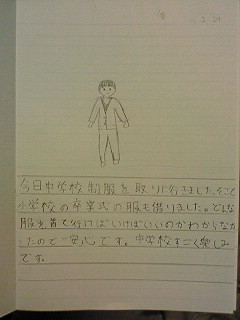 2-24
今日中学校制服を取りに行きました。そこで
小学校の卒業式の服も借りました。どんな
服を着て行けばいけばいいのかわからなか
ったのでご安心です。中学校すごく楽しみ
です。